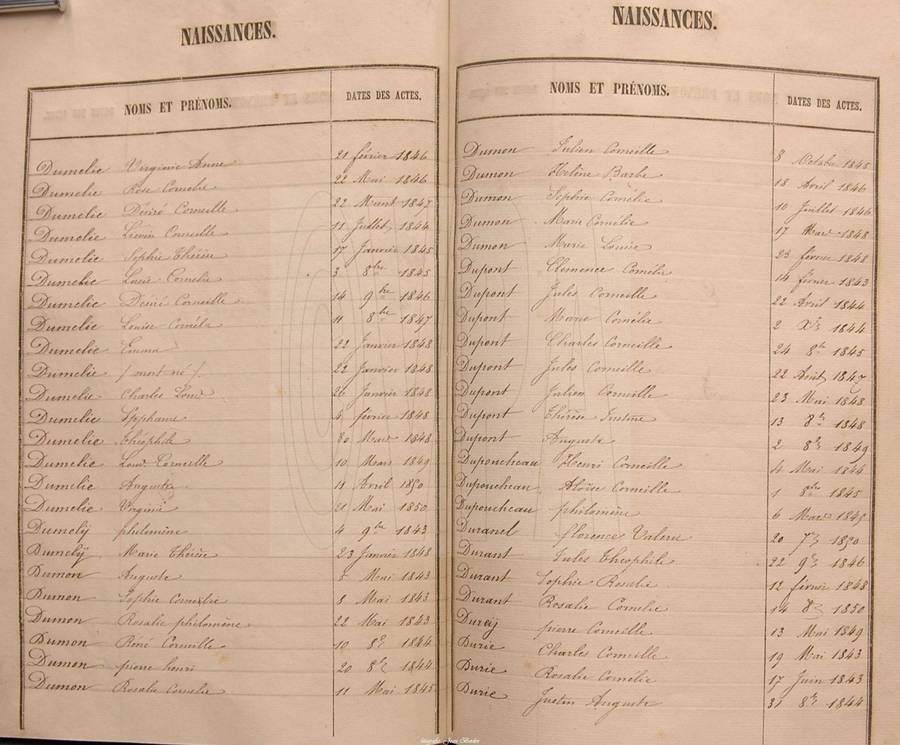 NAISSANCES.
NOMS ET PRÉNOMS. DATES DES ACTES.
Dumelie Virginie Anne 21 février 1846
Dumelie Rose Cornelie 22 Mai 1846
Dumelie Désiré Corneille 22 1847
Dumelie Liévin Corneille 11 Juillet 1844
Dumelie Sophie Thérèse 17 Janvier 1845
Dumelie Louise Cornelie 3 8bre 1845
Dumelie Désiré Corneille 14 9bre 1846
Dumelie Louise Cornélie 11 8bre 1847
Dumelie Emma 22 Janvier 1848
Dumelie / mort né /. 22 Janvier 1848
Dumelie Charles Louis 26 Janvier 1848
Dumelie Stéphanie 4 février 1848
Dumelie théophile 30 Mars 1848
Dumelie Louis Corneille 10 Mars 1849
Dumelie Auguste 11 Avril 1850
Dumelie Virginie 21 Mai 1850
Dumelij philomène 4 9bre 1843
Dumelij Marie Thérèse 23 Janvier 1848
Dumon Auguste Mai 1843
Dumon Sophie Cornelie 8 Mai 1843
Dumon Rosalie philomène 22 Mai 1843
Dumon Aimé Corneille 10 8bre 1844
Dumon pierre henri 20 8bre 1844
Dumon Rosalie Cornelie 11 Mai 1845
NAISSANCES.
NOMS ET PRÉNOMS. DATES DES ACTES.
Dumon Julien Corneille 8 Octobre 1845
Dumon Hélène Barbe 18 Avril 1846
Dumon Sophie Cornélie 10 Juillet 1846
Dumon Marie Cornélie 17 Mars 1848
Dumon Marie Louise 23 février 1848
Dupont Clemence Cornélie 14 février 1843
Dupont Jules Corneille 22 Avril 1844
Dupont Marie Cornélie 2 Xbre 1844
Dupont Charles Corneille 24 8bre 1845
Dupont Jules Corneille 22 Août 1847
Dupont Julien Corneille 23 Mai 1848
Dupont thérèse Justine 13 8bre 1848
Dupont Auguste 2 8bre 1849
Duponcheau Henri Corneille 4 Mai 1844
Duponcheau Aloïse Corneille 1 8bre 1845
Duponcheau philomène 6 Mars
Durand florence Valerie 20 7bre 1850
Durant Jules théophile 22 9bre 1846
Durant Sophie Rosalie 12 février 1848
Durant Rosalie Cornelie 14 8bre 1850
Durej pierre Corneille 13 Mai 1849
Durie Charles Corneille 19 Mai 1843
Durie Rosalie Cornelie 17 Juin 1843
Durie Justin Auguste 31 8bre 1844